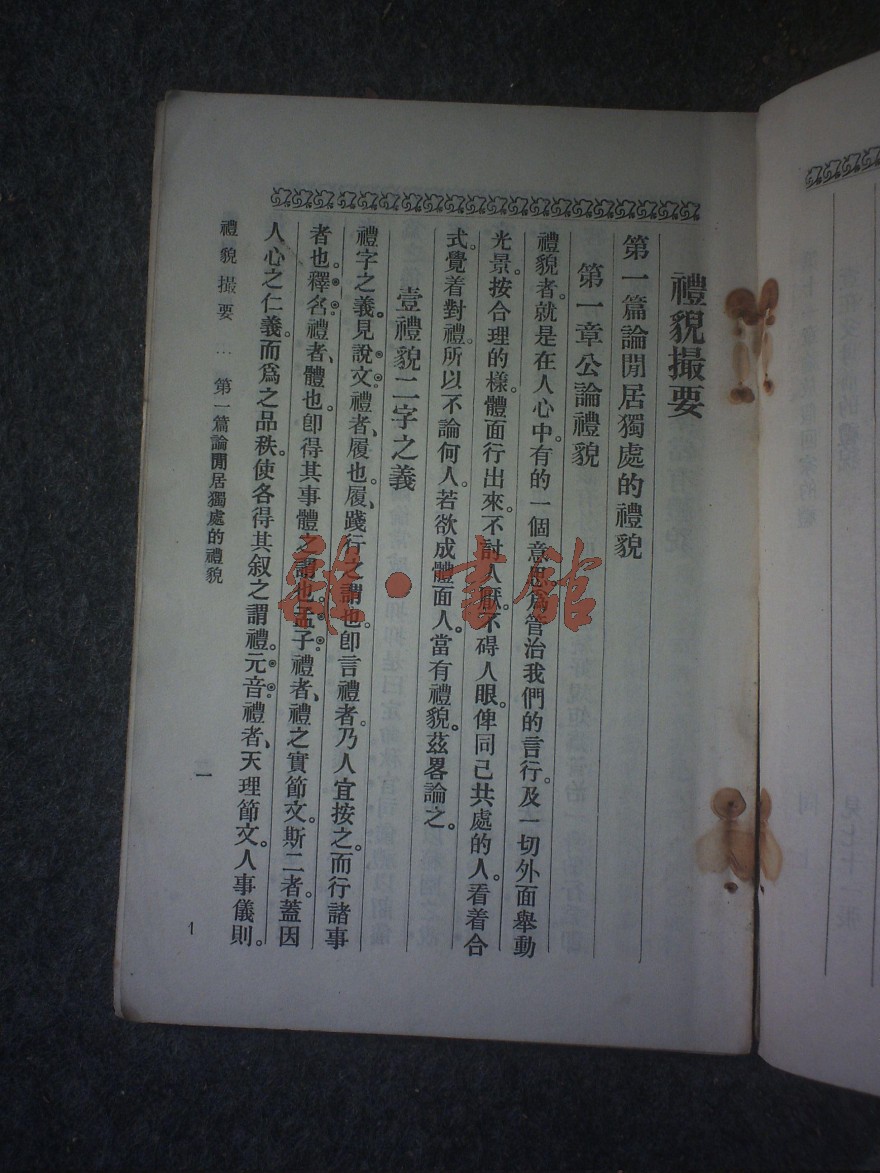 禮貌撮要
第一篇論閒居獨處的禮貌
第一章公論禮貌
禮貌者。就是在人心中有的一個意思。爲管治我們的言行。及一切外面舉動
光景。按合理的樣。體面行出來。不討人厭。不碍人眼。俾同己共處的人。看着合
式。覺着對禮。所以不論何人。若欲成體面人。當有禮貌。茲畧論之。
壹禮貌二字之義
禮字之義。見說文。禮者、履也。履、踐行之謂也。卽言禮者。乃人宜按之。而行諸事
者也。釋名。禮者、體也。卽得其事體之謂也。孟子。禮者、禮之實節文。斯二者。蓋因
人心之仁義。而爲之品秩。使各得其叙之謂禮。元音。禮者、天理節文。人事儀則。
禮貌撮要 … 第一篇論閒居獨處的禮貌
一
1
雜·書館